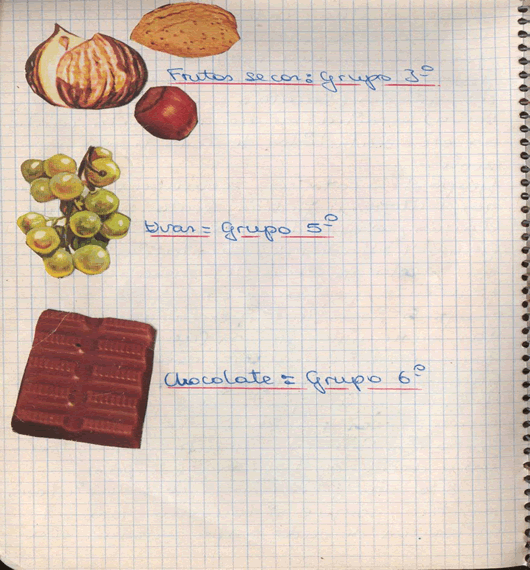 Frutos secos: Grupo 3º
Uvas = Grupo 5º
Chocolate = Grupo 6º